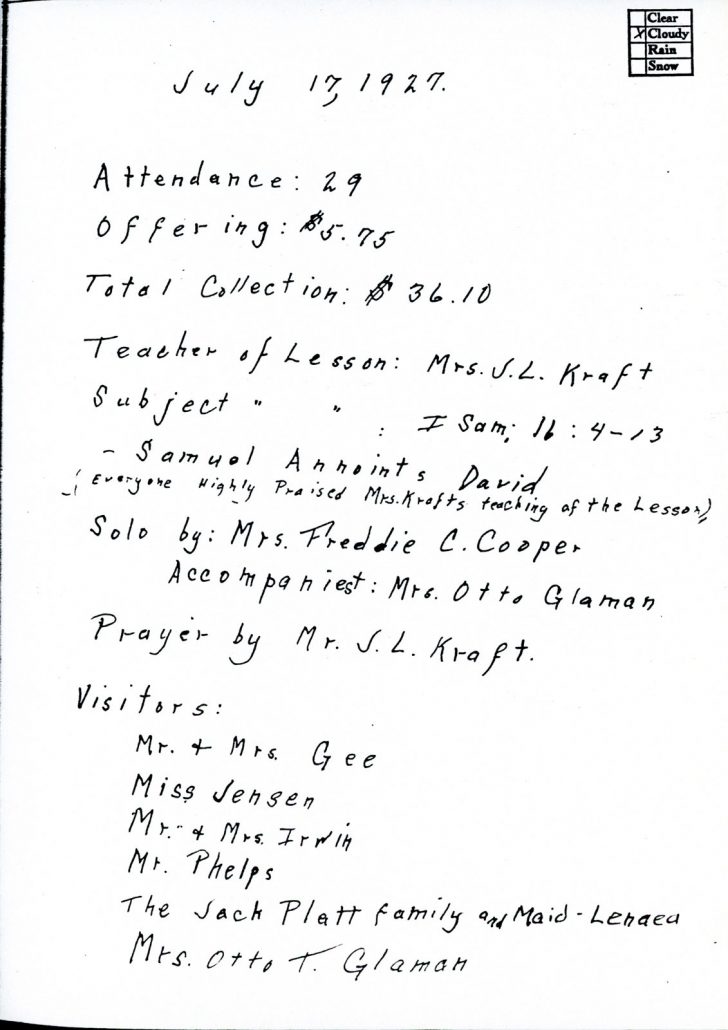 Clear
X Cloudy
Rain
Snow
July 17, 1927.
Attendance: 29
Offering: $5.75
Total Collection: $ 36.10
Teacher of Lesson: Mrs. J.L. Kraft
Subject " " : I Sam; 16 : 4-13
- Samuel Annoints David
(Everyone Highly Praised Mrs. Krafts teaching of the Lesson)
Solo by: Mrs. Freddie C. Cooper
Accompaniest: Mrs. Otto Glaman
Prayer by Mr. J. L. Kraft.
Visitors:
Mr. + Mrs. Gee
Miss Jensen
Mr. + Mrs. Irwin
Mr. Phelps
The Jack Platt family and Maid - Lenaea
Mrs. Otto T. Glaman